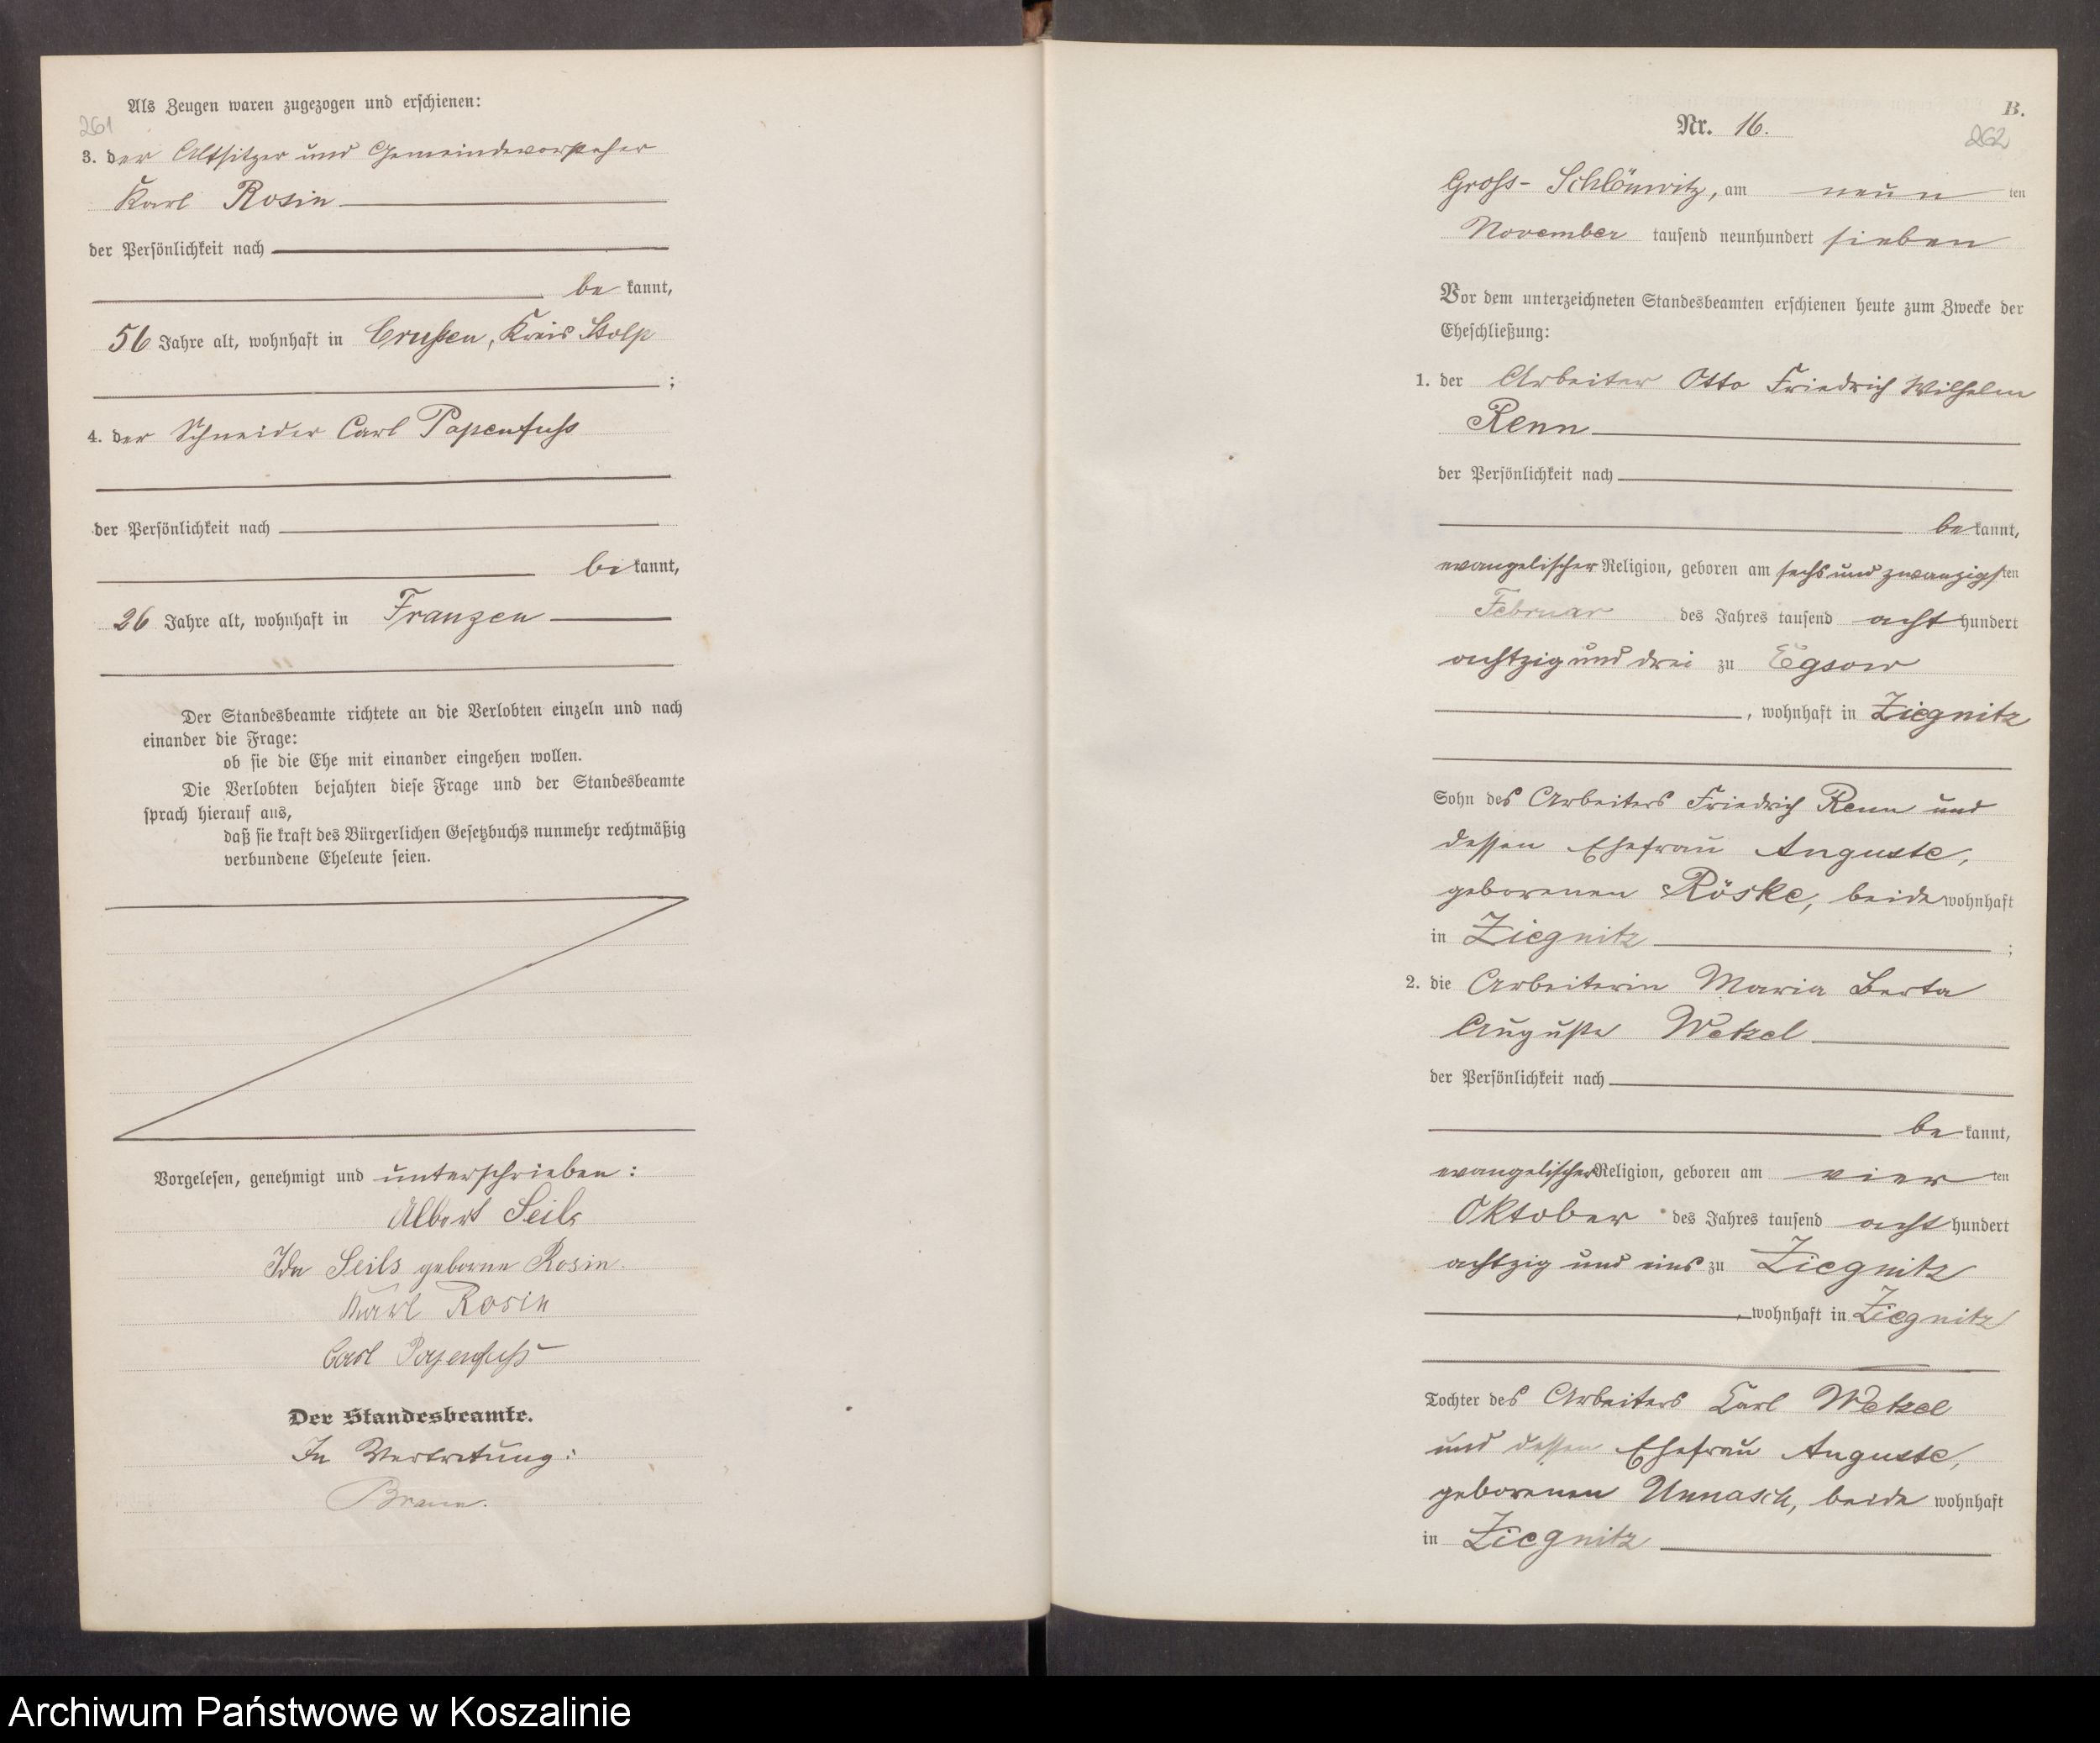 Als Zeugen waren zugezogen und erschienen:
261
3. der Altsitzer und Gemeindevorsteher
Karl Rosin
der Persönlichkeit nach
be kannt,
56 Jahre alt, wohnhaft in Crussen, Kreis Stolp
;
4. der Schneider Carl Papenfuss
der Persönlichkeit nach
be kannt,
26 Jahre alt, wohnhaft in Franzen
Der Standesbeamte richtete an die Verlobten einzeln und nach
einander die Frage:
ob sie die Ehe mit einander eingehen wollen.
Die Verlobten bejahten diese Frage und der Standesbeamte
sprach hierauf aus,
daß sie kraft des Bürgerlichen Gesetzbuchs nunmehr rechtmäßig
verbundene Eheleute seien.
Vorgelesen, genehmigt und unterschrieben:
Albert Seils
Ida Seils geborne Rosin.
Karl Rosin
Carl Papenfuß
Der Standesbeamte.
In Vertretung:
B.
Nr. 16.
262
Gross-Schlönwitz, am neun ten
November tausend neunhundert sieben
Vor dem unterzeichneten Standesbeamten erschienen heute zum Zwecke der
Eheschließung:
1. der Arbeiter Otto Friedrich Wilhelm
Renn
der Persönlichkeit nach
be kannt,
evangelischer Religion, geboren am sechs und zwanzigsten
Februar des Jahres tausend acht hundert
achtzig und drei zu Egsow
, wohnhaft in Ziegnitz
Sohn des Arbeiters Friedrich Renn und
dessen Ehefrau Auguste,
geborenen Röske, beide wohnhaft
in Ziegnitz ;
2. die Arbeiterin Maria Berta
Auguste Wetzel
der Persönlichkeit nach
be kannt,
evangelischer Religion, geboren am vier ten
Oktober des Jahres tausend acht hundert
achtzig und eins zu Ziegnitz
, wohnhaft in Ziegnitz
Tochter des Arbeiters Karl Wetzel
und dessen Ehefrau Auguste,
geborenen Unnasch, beide wohnhaft
in Ziegnitz
Archiwum Państwowe w Koszalinie